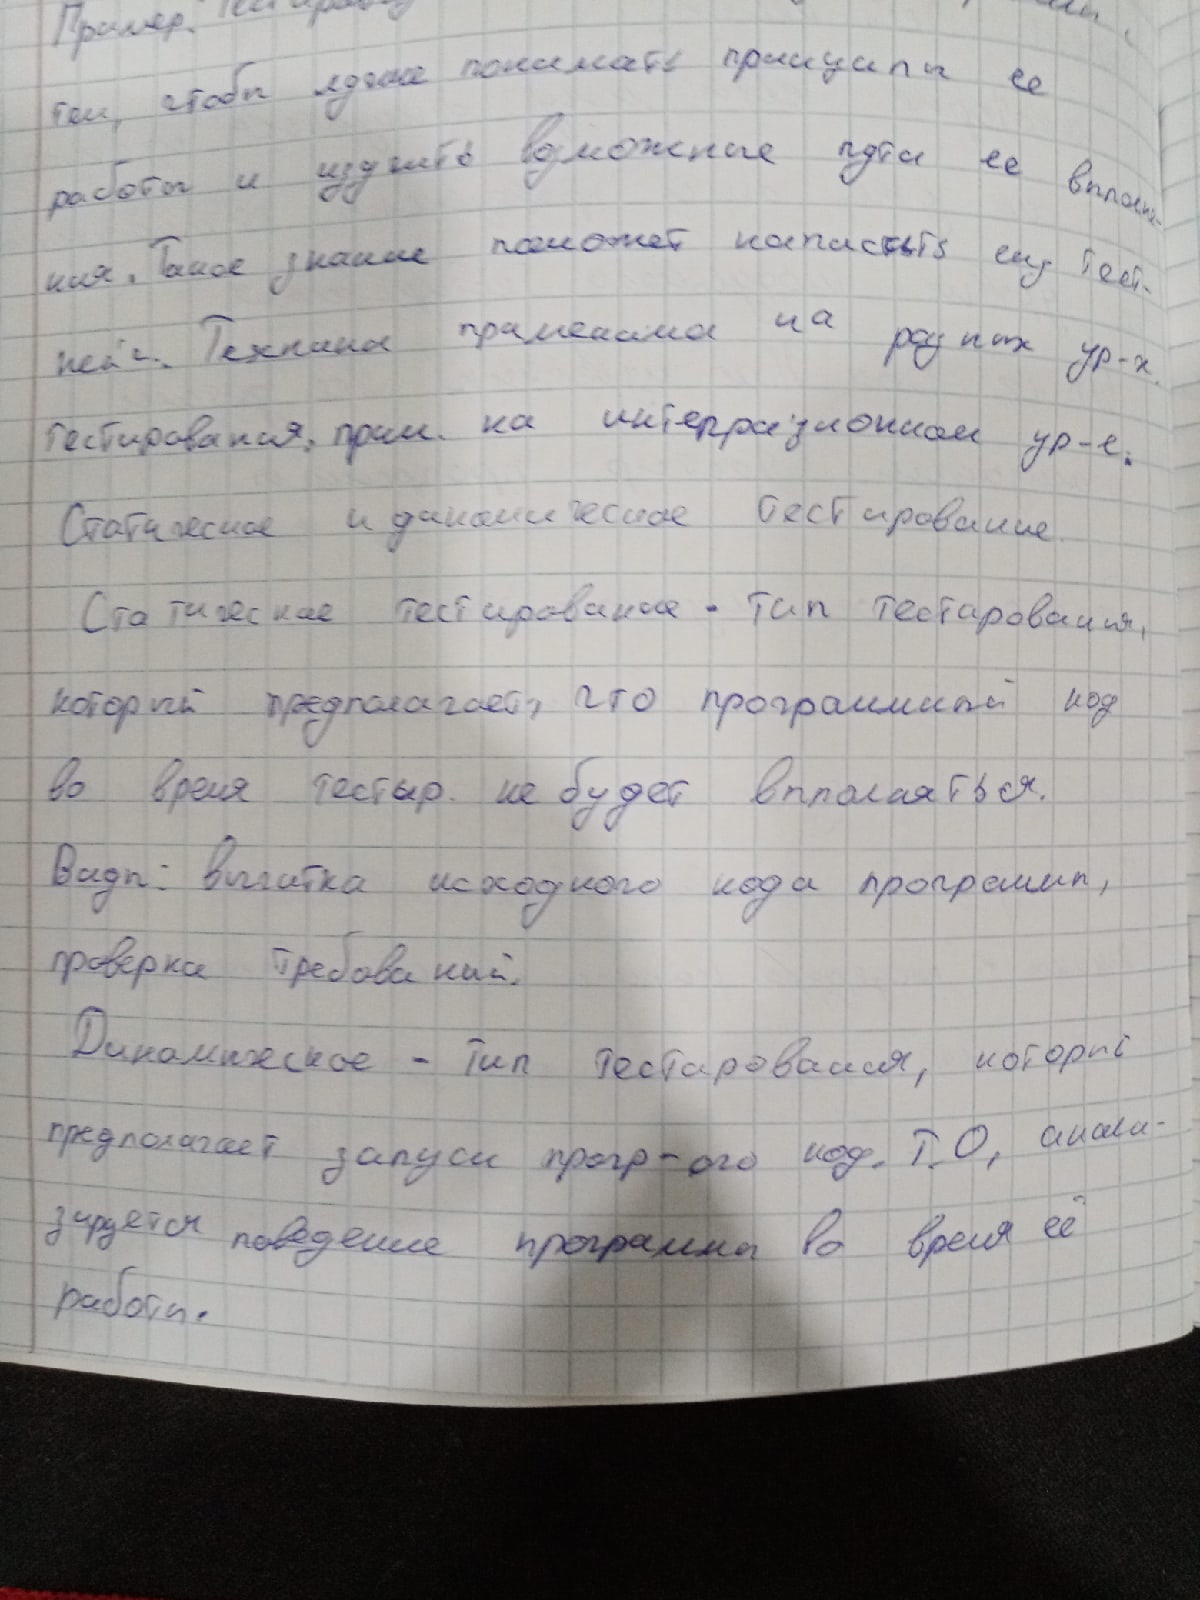 Пример. Тестировщ
тем, чтобы лучше понимать принципы ее
работы и изучить возможные пути ее выполне-
ния. Такое знание поможет написать ему тест-
кейс. Техника применима на разных ур-х
тестирования, прим. на интеграционном ур-е.
Статическое и динамическое тестирование
Статическое тестирование - тип тестирования,
который предполагает, что программный код
во время тестир. не будет выполняться.
Виды: вычитка исходного кода программы,
проверка требований.
Динамическое - тип тестирования, который
предполагает запуск прогр-ого код. Т.О, анали-
зируется поведение программы во время её
работы.